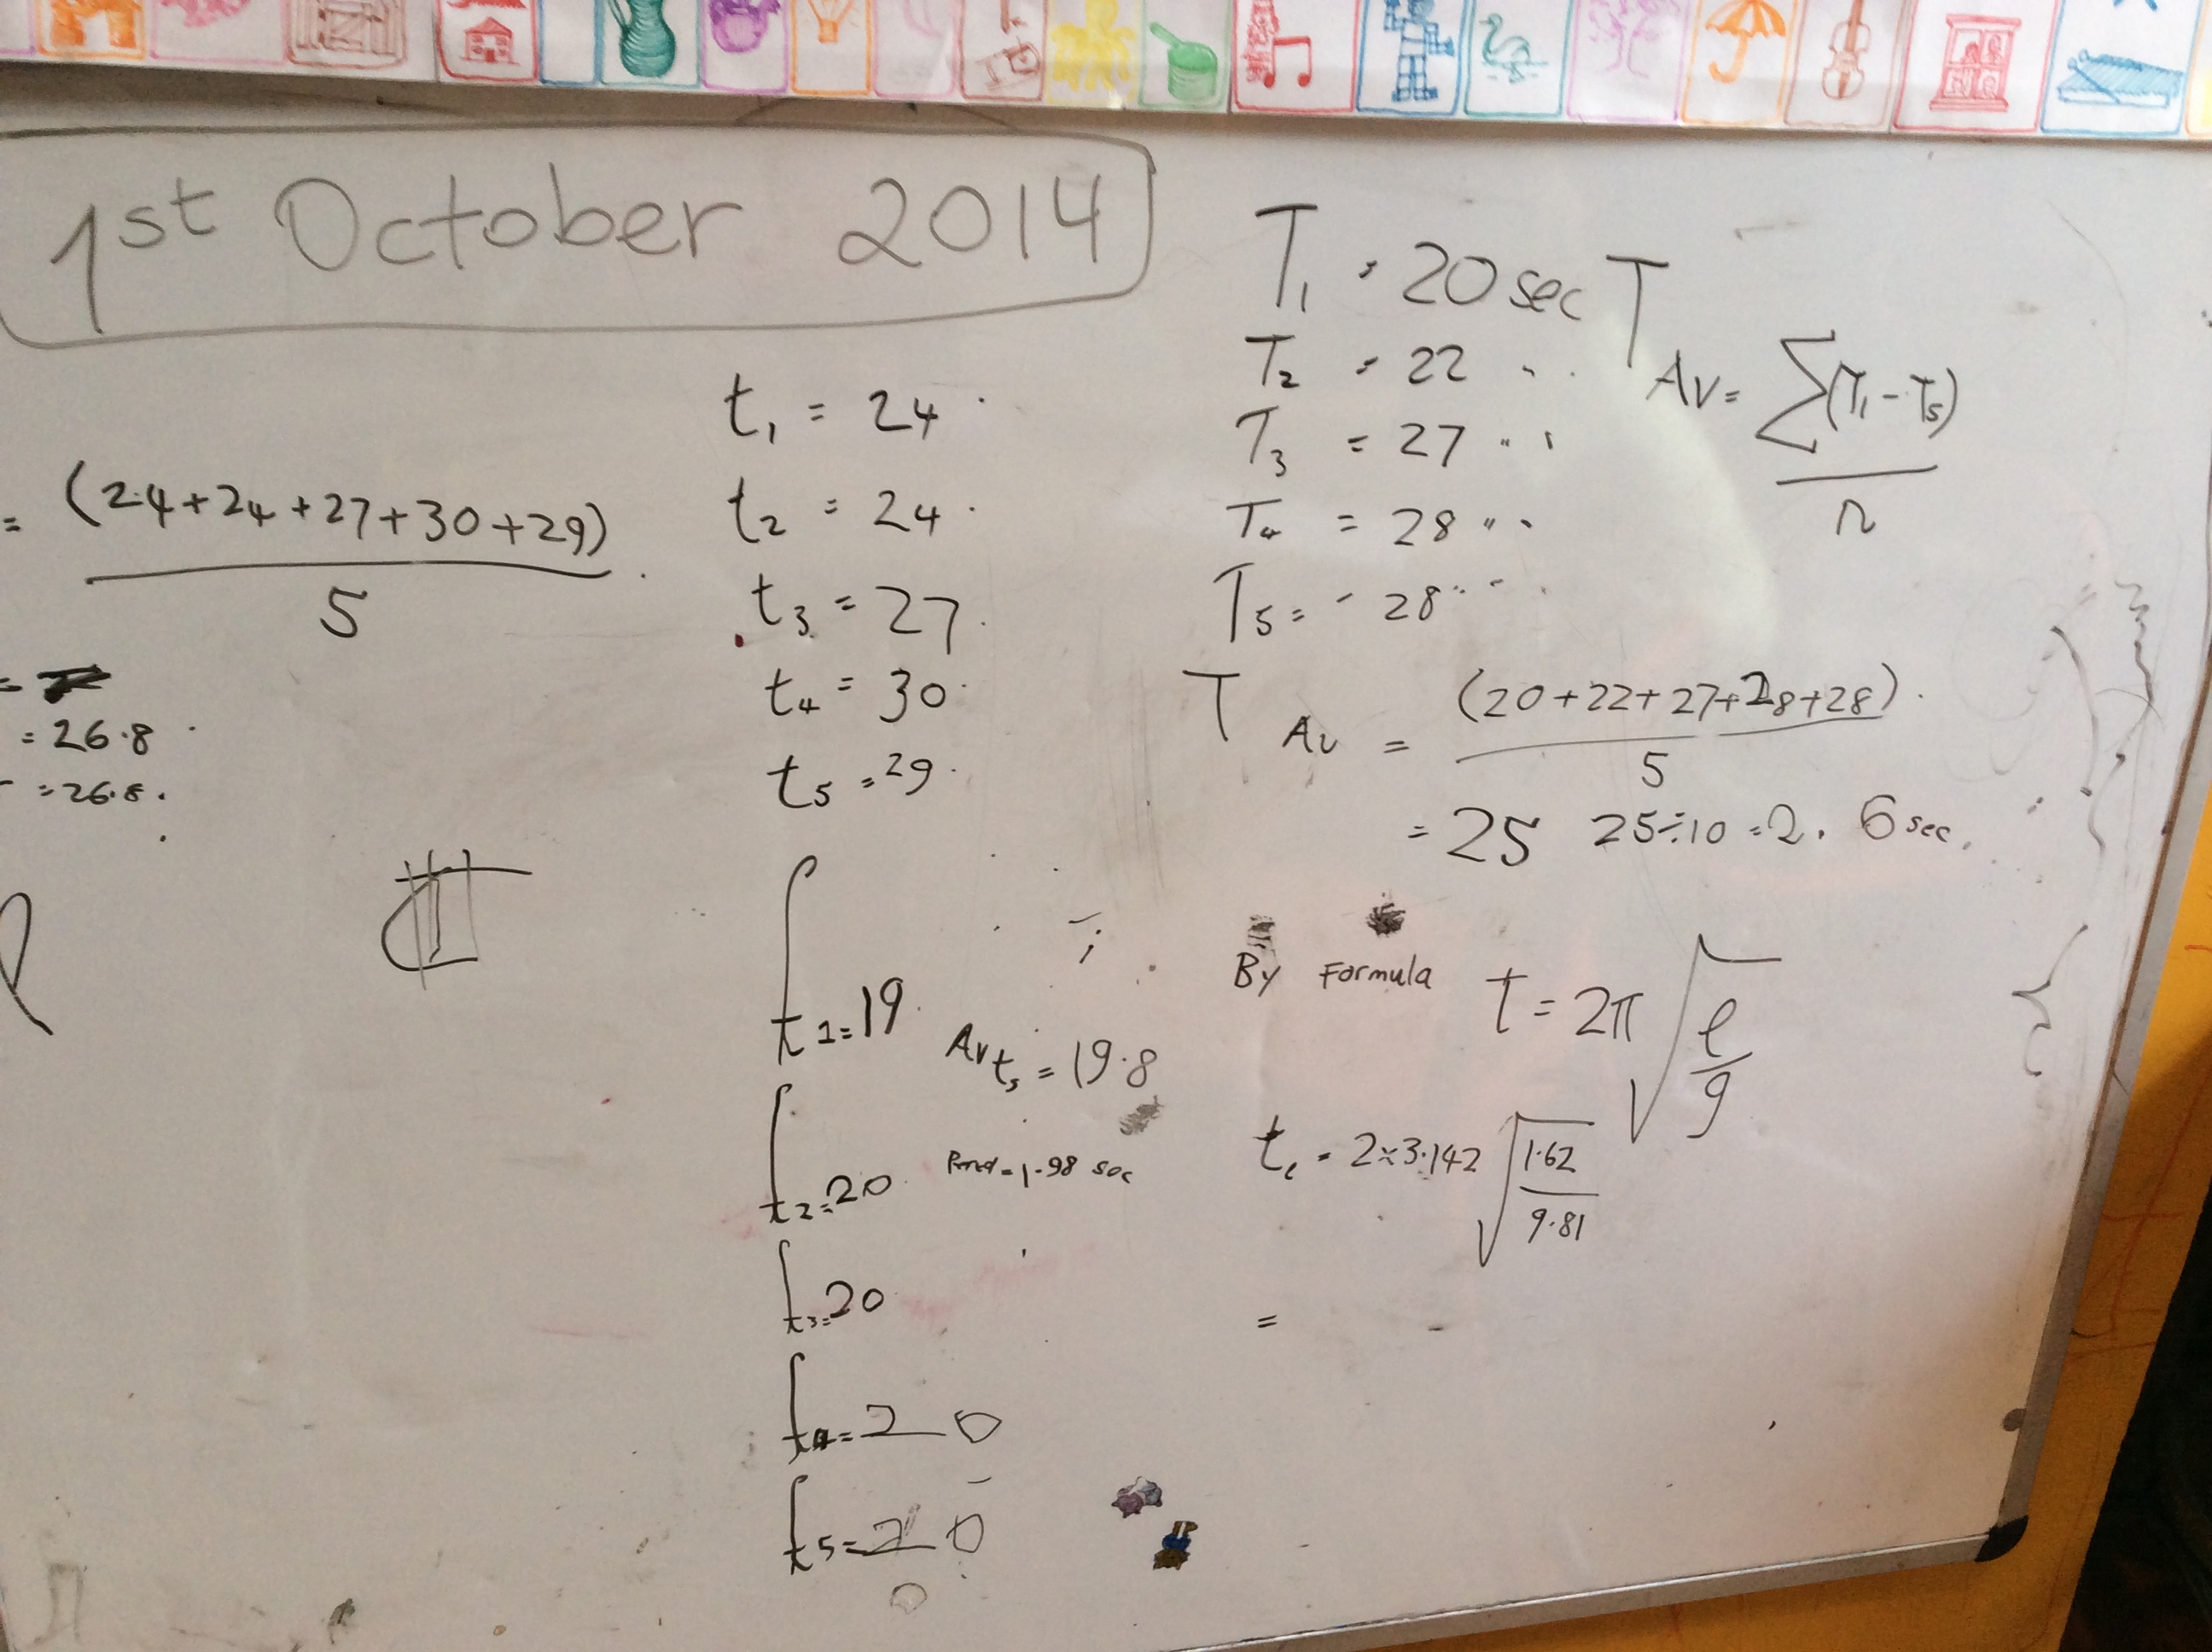 1st October 2014
= (24+24+27+30+29)
5
= 26.8
= 26.8.
t1 = 24
t2 = 24
t3 = 27
t4 = 30
t5 = 29
t1=19
t2=20
t3=20
t4=20
t5=20
Av ts = 19.8
= 1.98 sec
T1 = 20 sec
T2 = 22 " "
T3 = 27 " "
T4 = 28 " "
T5 = 28 " "
TAV = ∑(T1 - T5)
n
TAv = (20+22+27+28+28)
5
= 25 25÷10 = 2. 6 sec.
By Formula t = 2π√l/g
t = 2×3.142 √1.62/9.81
=